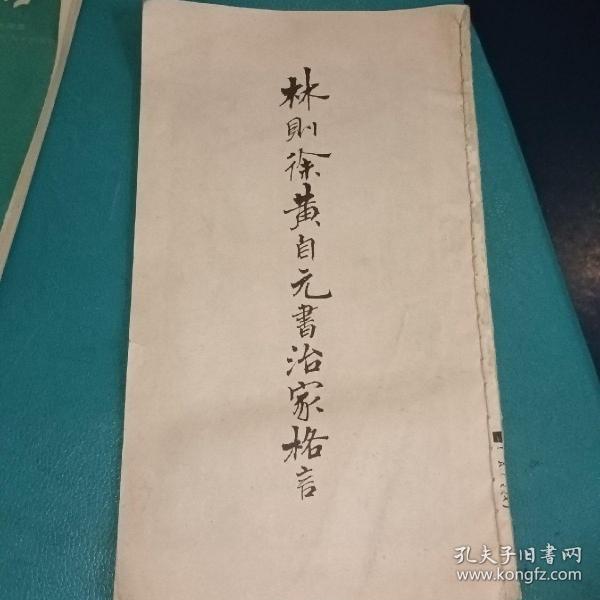 林則徐黄自元書治家格言
孔夫子旧書网
www.kongfz.com